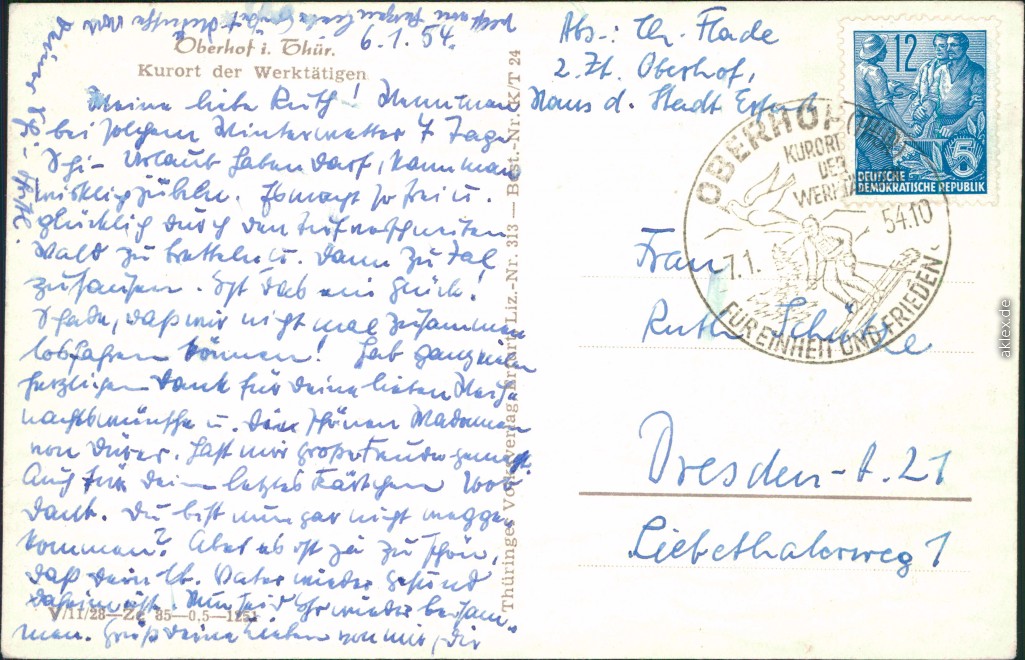 Oberhof i. Thür.
Kurort der Werktätigen
6.1.54.
Meine liebe Ruth! Wenn man
bei solchem Winterwetter 7 Tage
Ski-Urlaub haben darf, kann man
wirklich jubeln. Es macht so frei u.
glücklich durch den tiefverschneiten
Wald zu bretteln u. dann zu Tal
zu sausen. Ist das ein Glück!
Schade, daß wir nicht mal zusammen
losfahren können! Hab ganz
herzlichen Dank für deine lieben Weih-
nachtswünsche u. die schönen Madonnen
von Dürer. Hast mir große Freude gemacht.
Auch für dein letztes Kärtchen
Dank. Du bist nun gar nicht wegge-
kommen? Aber es ist ja zu schön,
daß dein lb. Vater wieder gesund
daheim ist. Nun seid Ihr wieder beisam-
men. Grüß deine Lieben von mir, dir
V/11/28—Ze 85—0,5—1251
Thüringer Volksverlag Erfurt, Liz.-Nr. 313 — Best.-Nr. K/T 24
Abs.: Ch. Flade
z.Zt. Oberhof,
Haus d. Stadt Erfurt
12
5
DEUTSCHE
DEMOKRATISCHE REPUBLIK
OBERHOF (THÜR)
KURORT
DER
WERKTÄ
7.1. 54.10
FÜR EINHEIT UND FRIEDEN
Frau
Ruth
Dresden-A. 21
Liebethalerweg 1
aklex.de